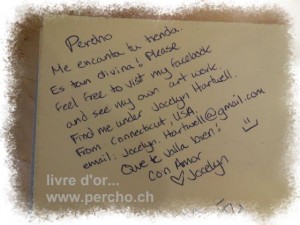 Percho
Me encanta tu tienda.
Es tan divina! Please
feel free to visit my facebook
and see my own art work.
Find me under Jocelyn Hartwell.
From Connecticut, USA.
email: Jocelyn.Hartwell@gmail.com
Que te valla bien!
Con Amor
Jocelyn
livre d'or...
www.percho.ch